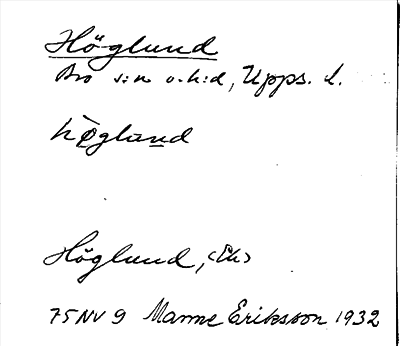 Höglund
Bro s:n o. h:d, Upps. l.
hö̀gland
Höglund, (Ek)
75 NV 9 Manne Eriksson 1932